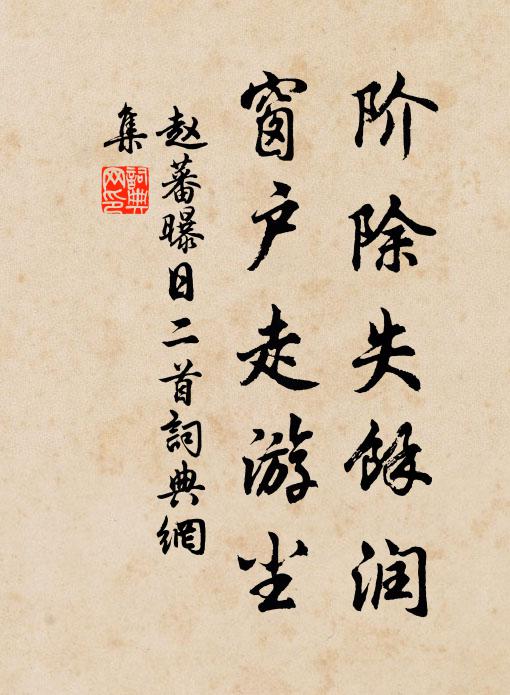 阶除失馀润
窗户走游尘
赵蕃曝日二首词典網
集
詞典
网印